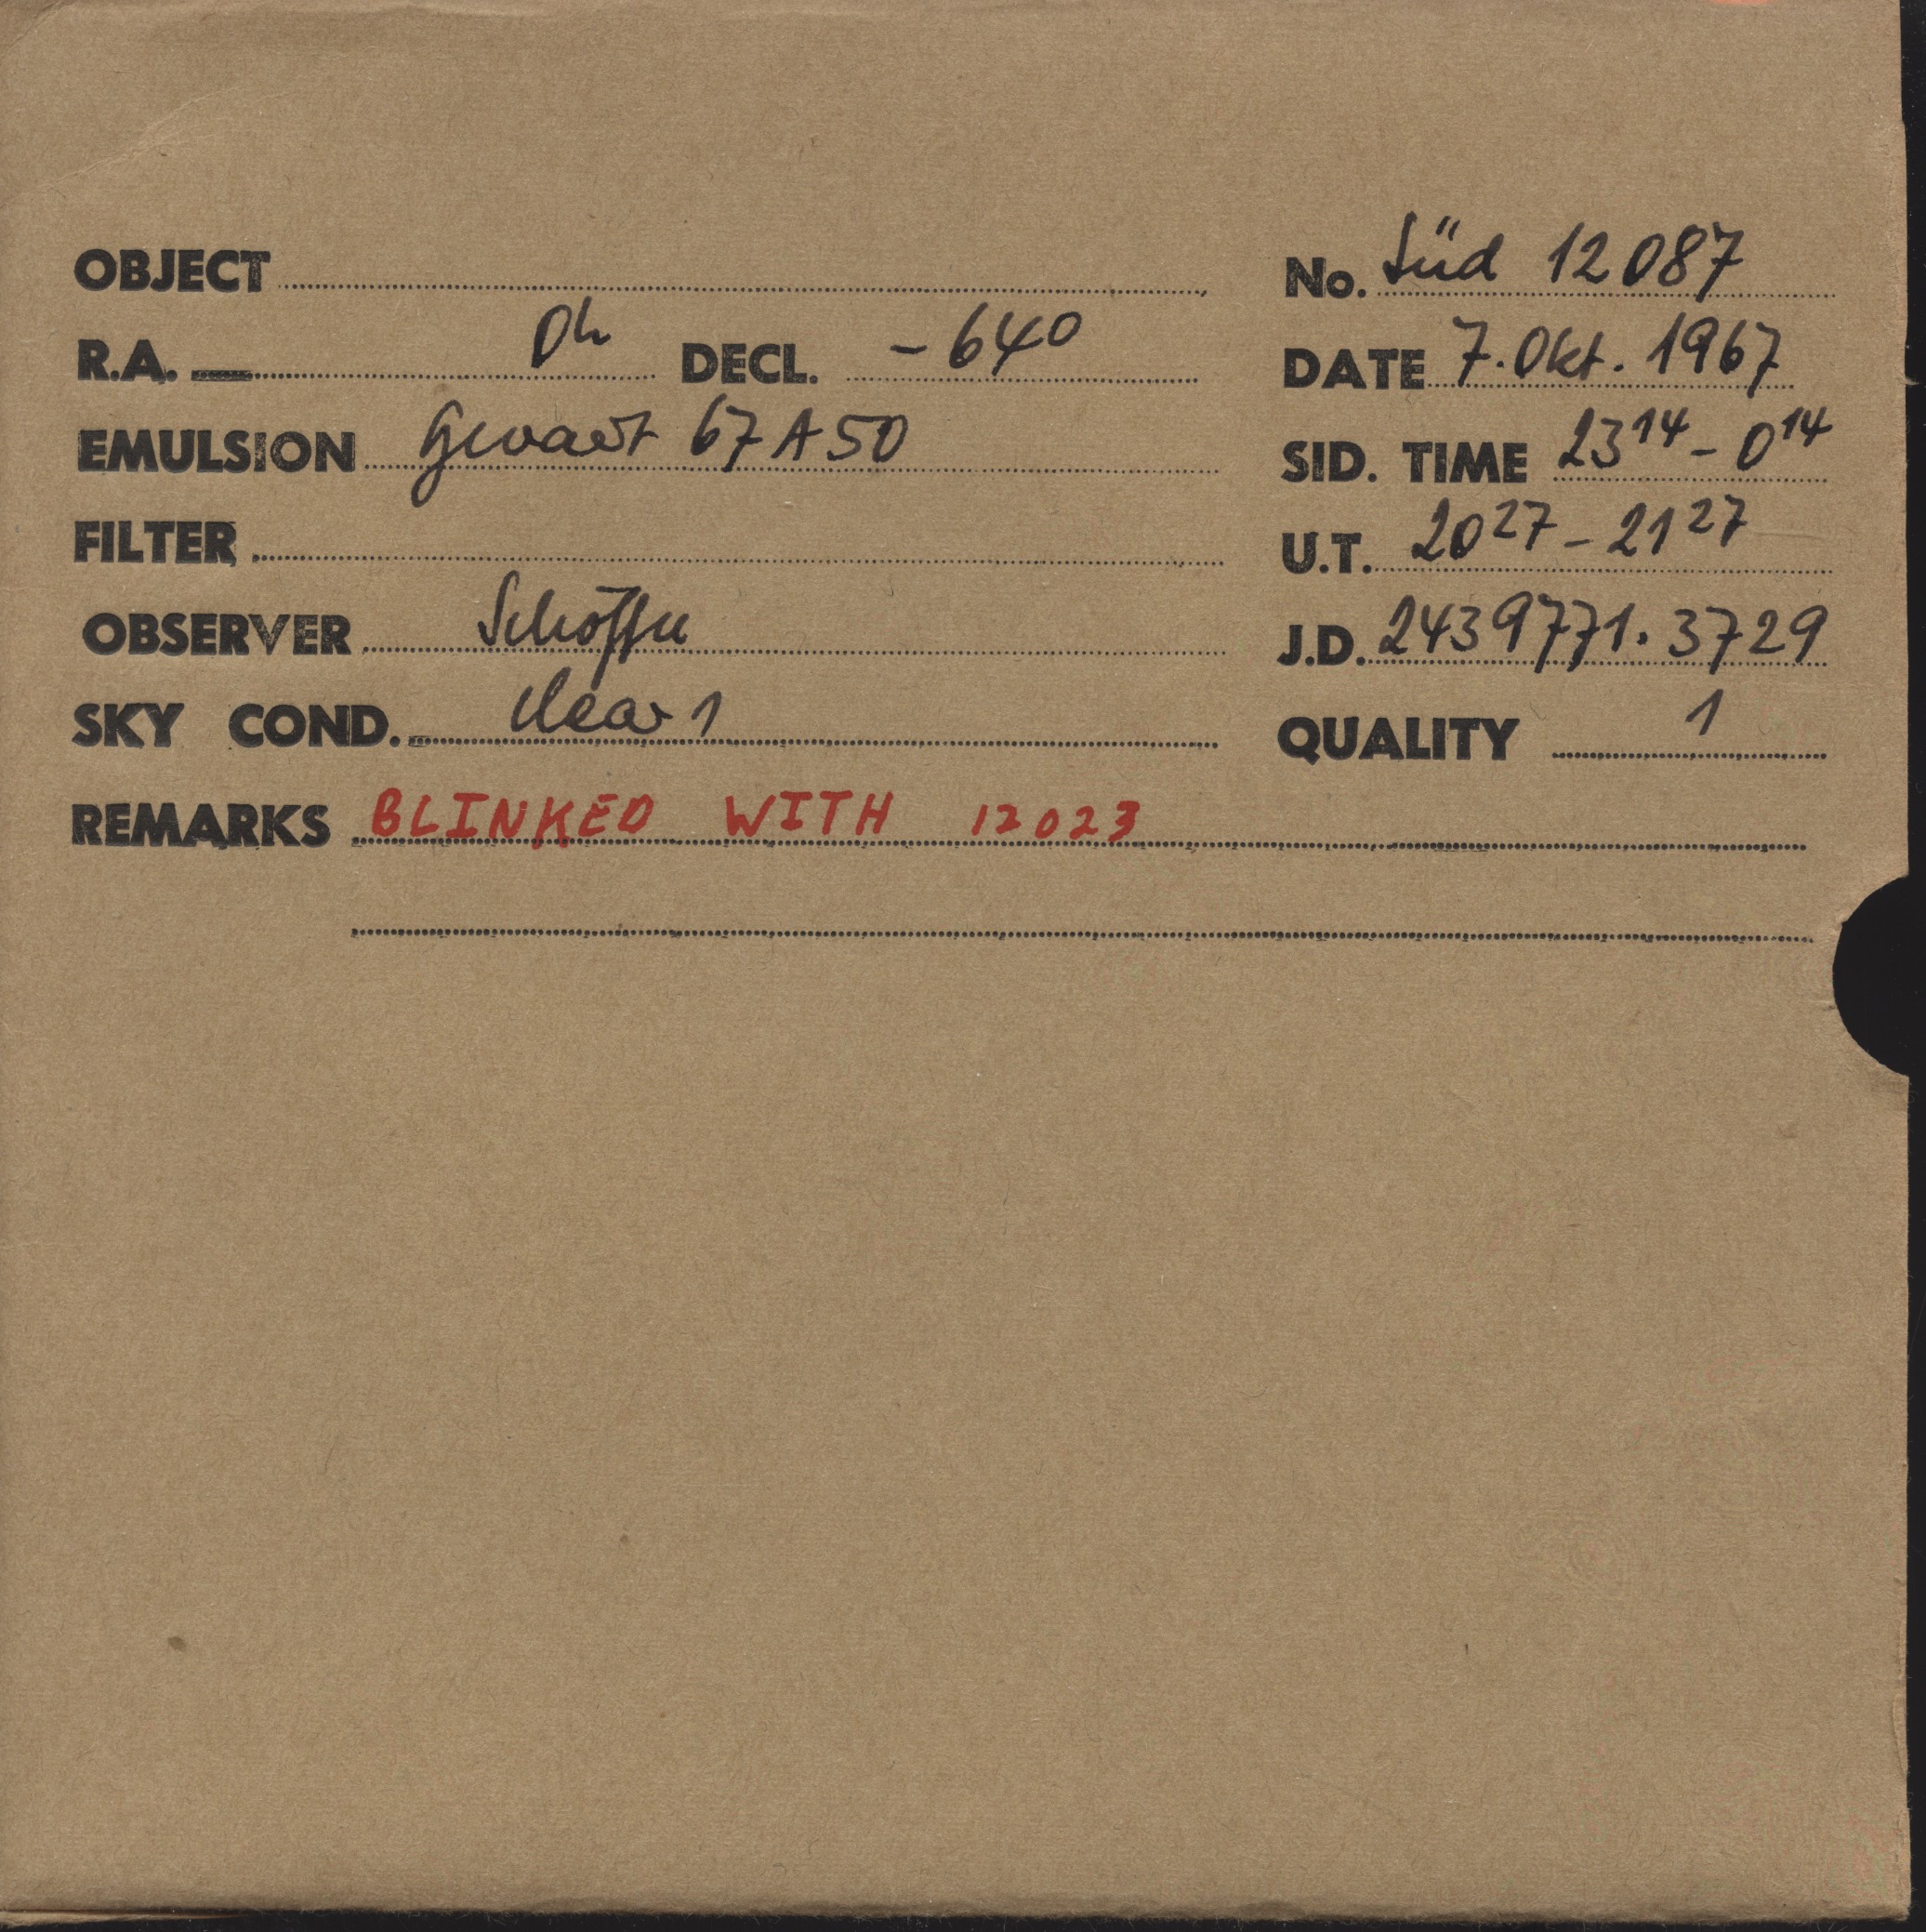 OBJECT
No. Süd 12087
R.A. 0h DECL. -64°
DATE 7. Okt. 1967
EMULSION Gevaert 67 A 50
SID. TIME 23 14 - 0 14
FILTER
U.T. 20 27 - 21 27
OBSERVER Schöffel
J.D. 2439771.3729
SKY COND. clear 1
QUALITY 1
REMARKS BLINKED WITH 12023